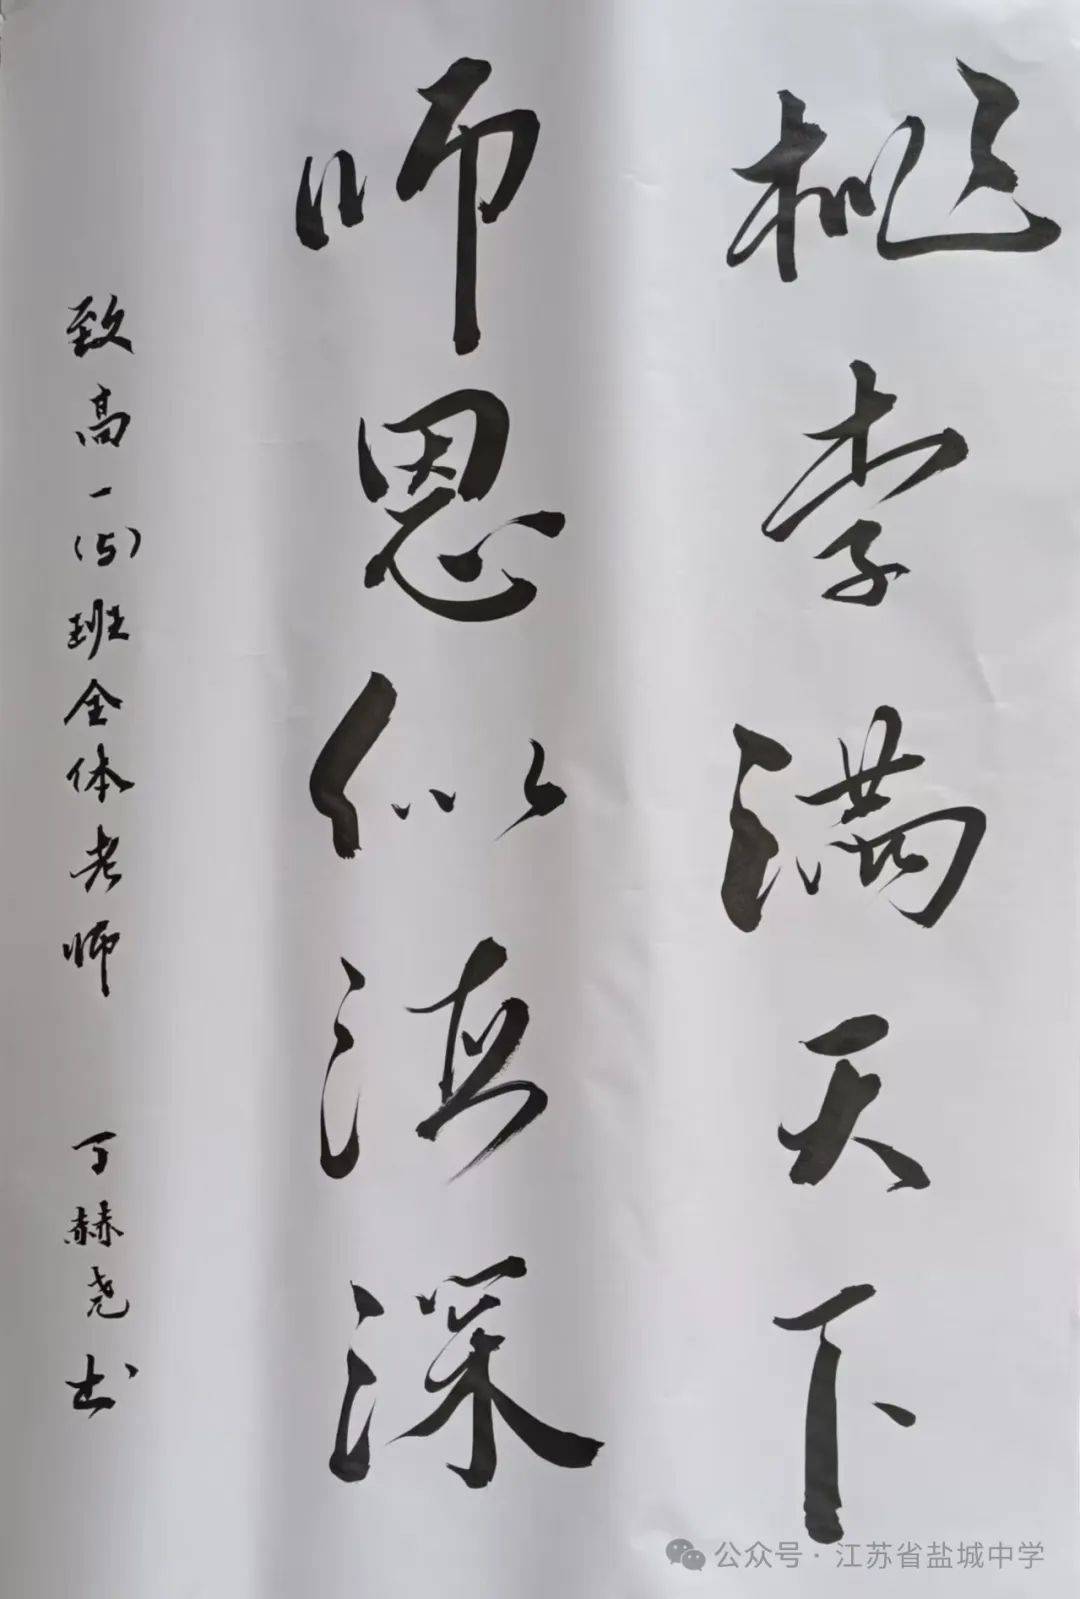 桃李满天下
师恩似海深
致高一(5)班全体老师 丁赫尧书
公众号·江苏省盐城中学